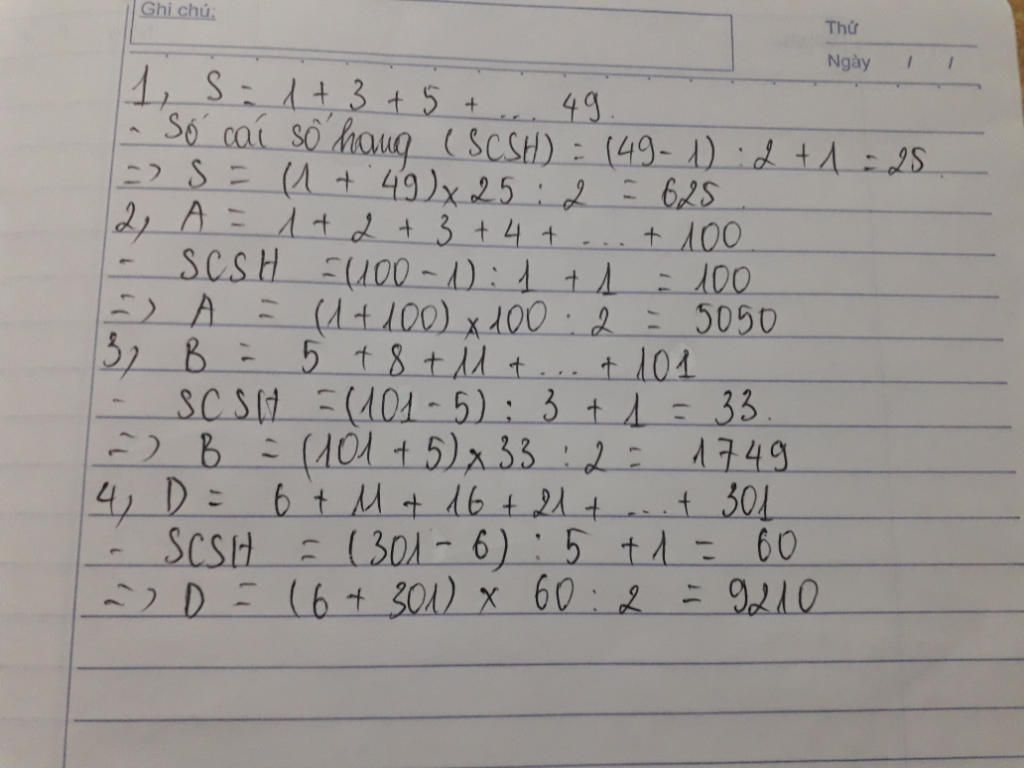 Ghi chú:
Thứ
Ngày / /
1, S = 1 + 3 + 5 + ... 49.
- Số cái số hang (SCSH) = (49-1) : 2 + 1 = 25.
=> S = (1 + 49) x 25 : 2 = 625.
2, A = 1 + 2 + 3 + 4 + ... + 100.
- SCSH = (100 - 1) : 1 + 1 = 100
=> A = (1+100) x 100 : 2 = 5050
3, B = 5 + 8 + 11 + ... + 101
- SCSH = (101 - 5) : 3 + 1 = 33.
=> B = (101 + 5) x 33 : 2 = 1749
4, D = 6 + 11 + 16 + 21 + ... + 301
- SCSH = (301 - 6) : 5 + 1 = 60
=> D = (6 + 301) x 60 : 2 = 9210